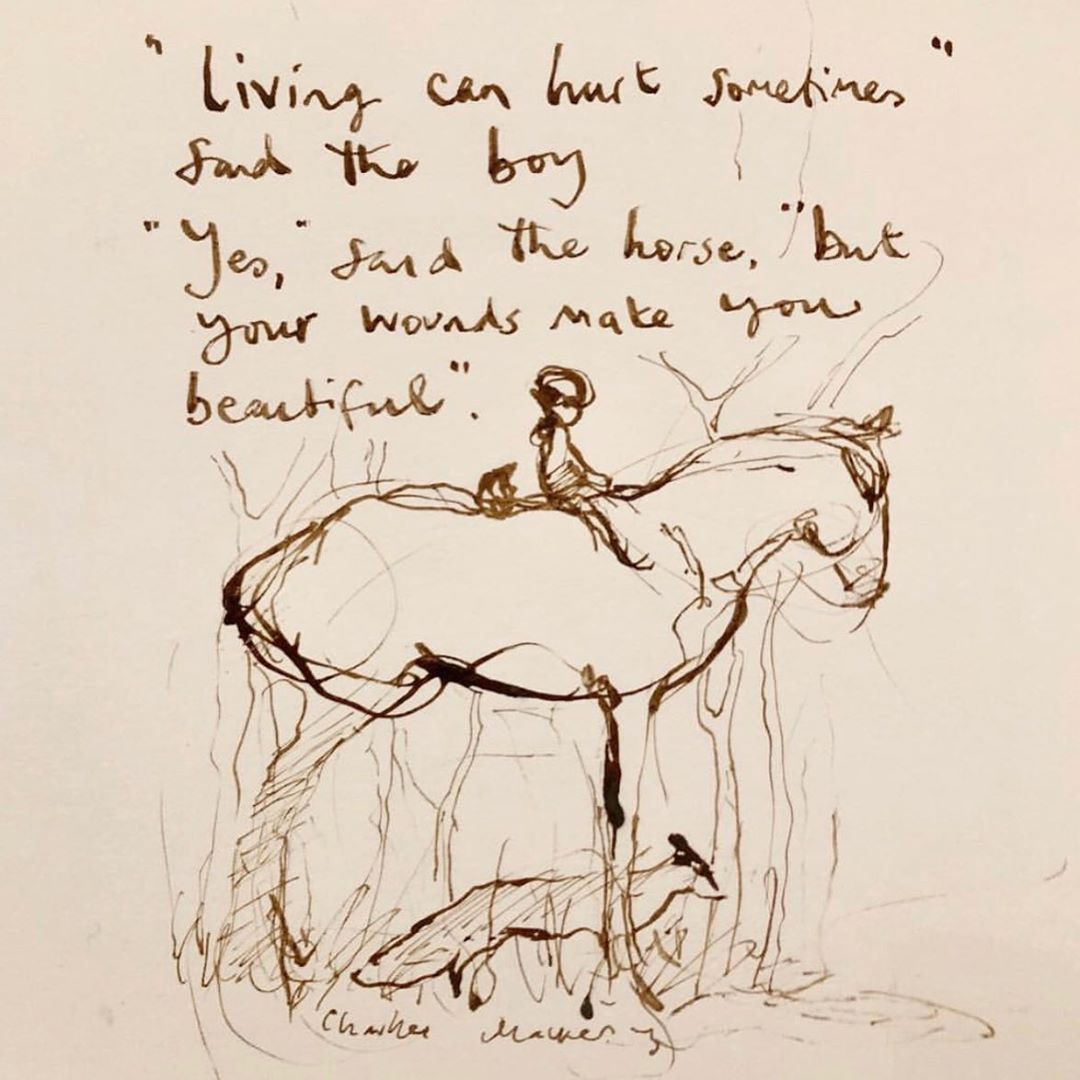 "Living can hurt sometimes"
said the boy
"Yes," said the horse, "but
your wounds make you
beautiful".
Charlie Mackesy